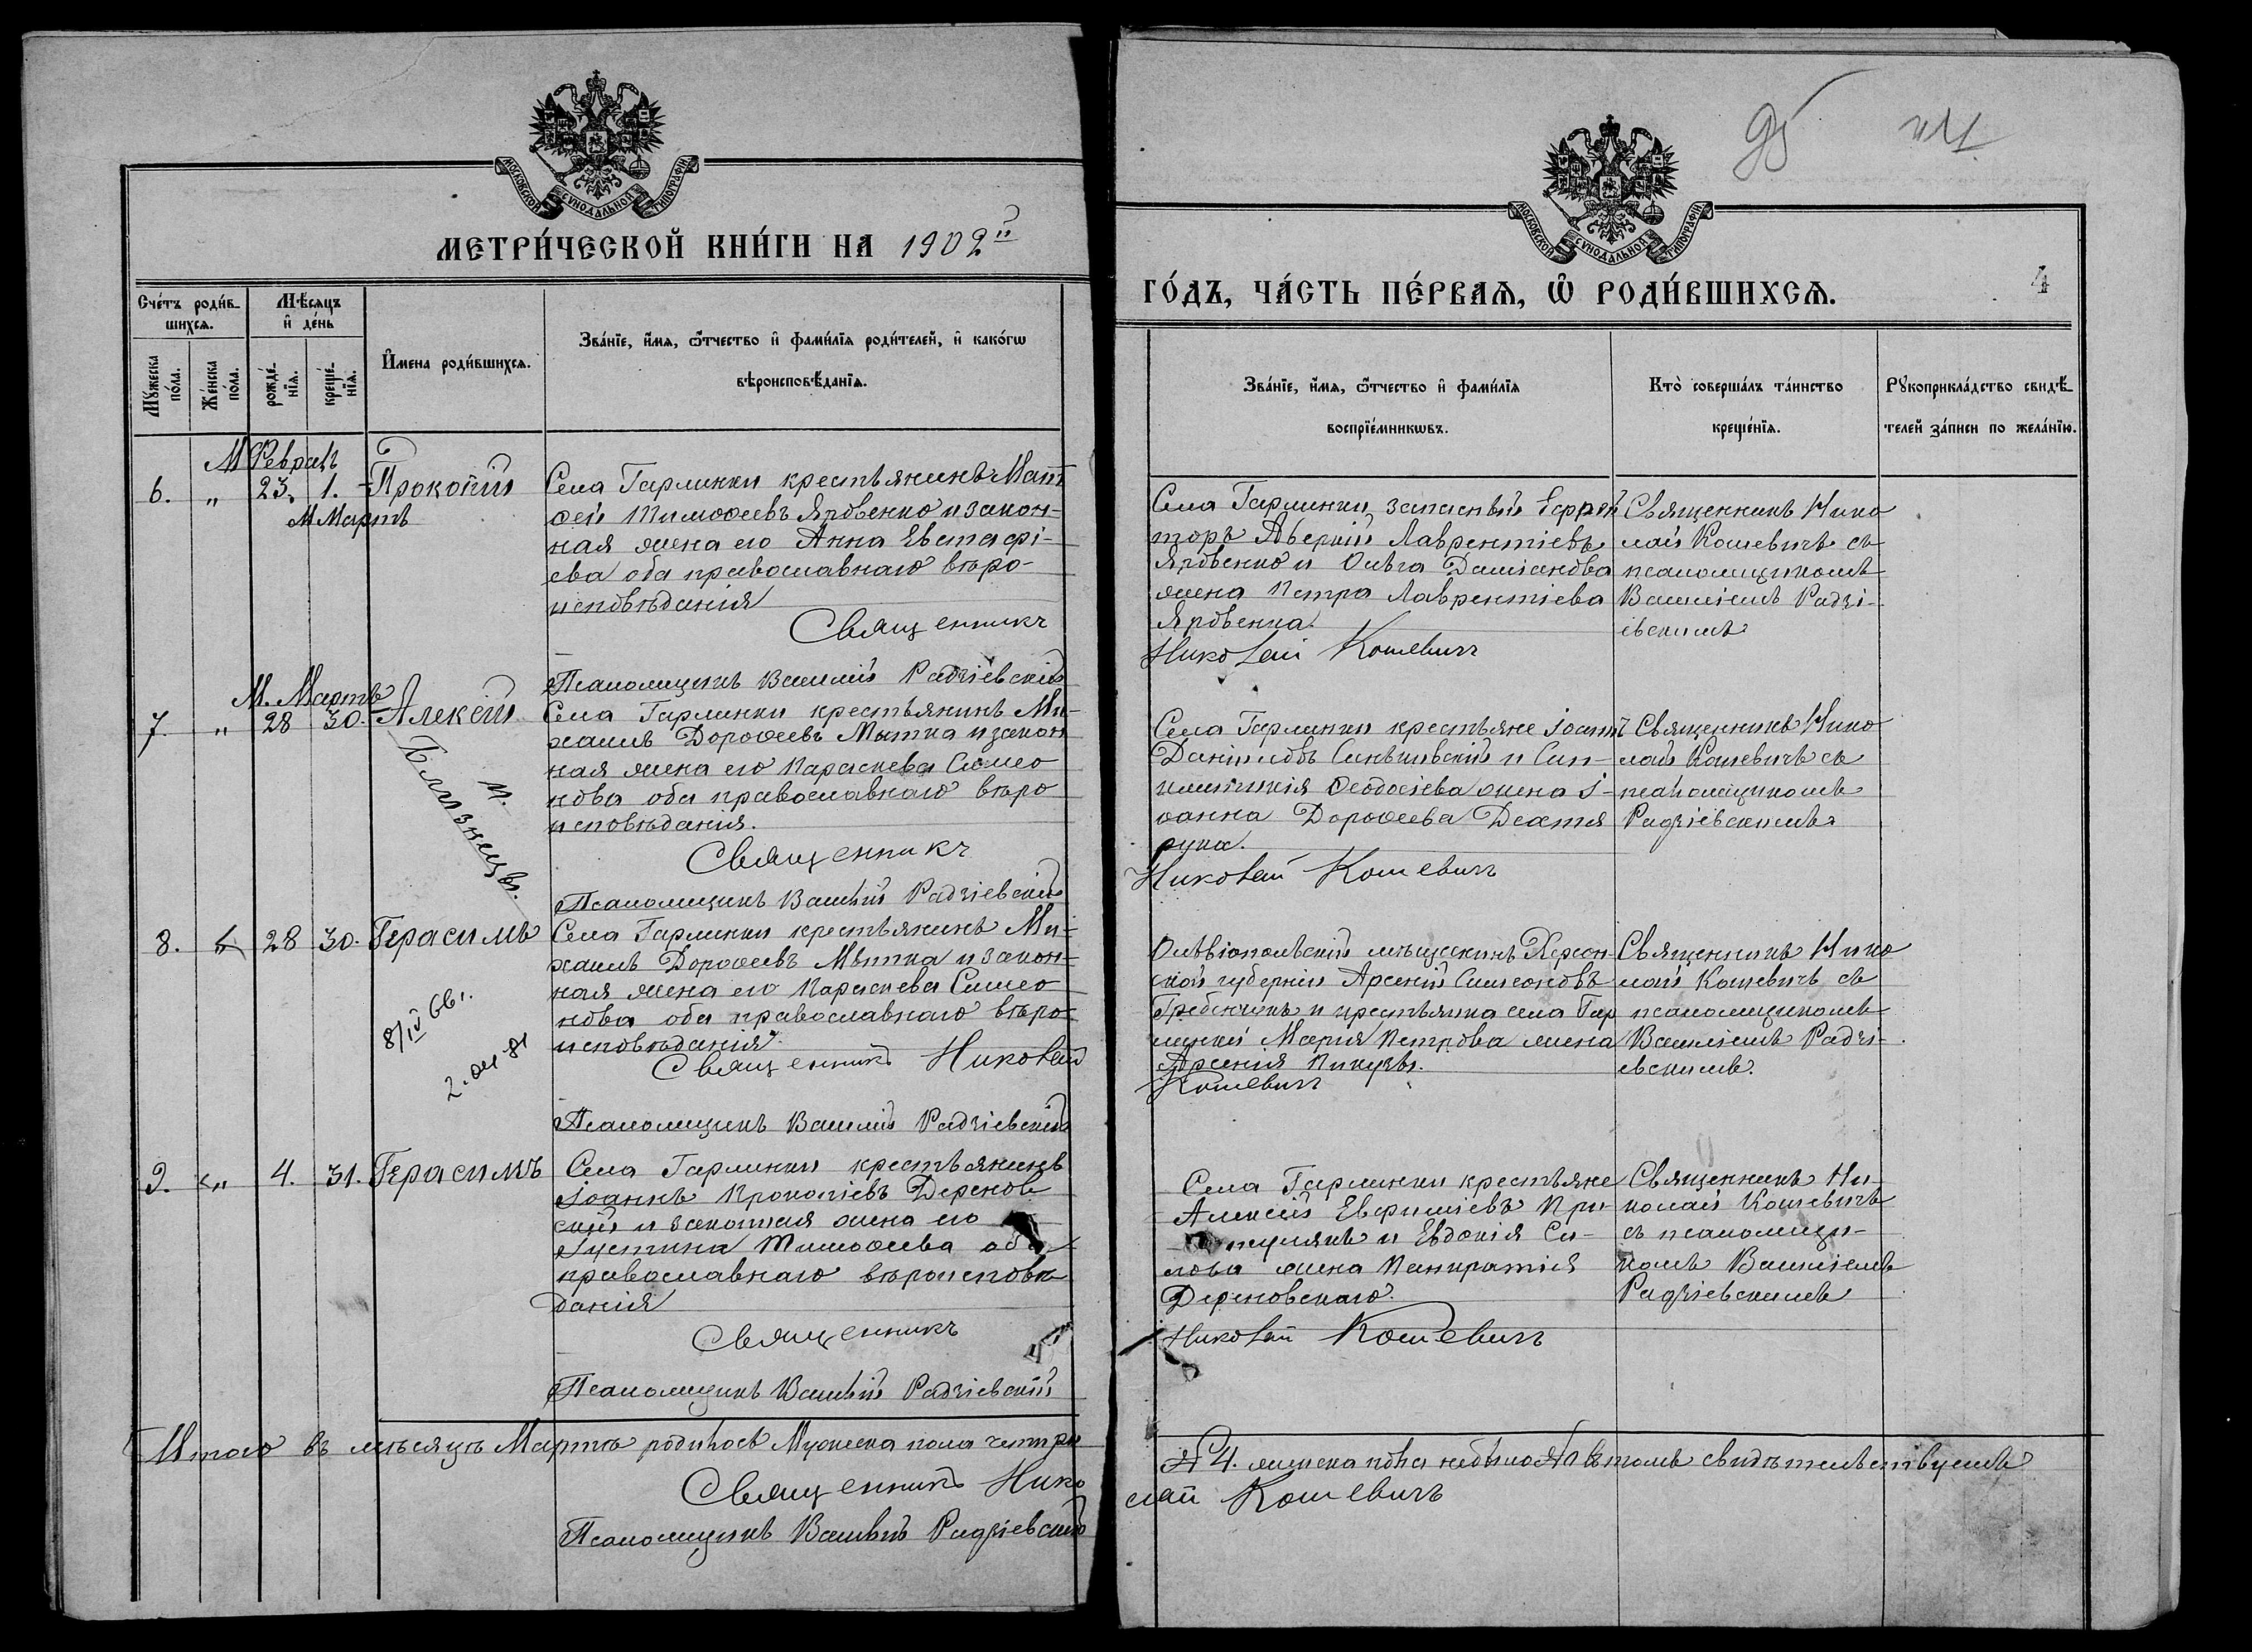 МОСКОВСКОЙ СѴНОДАЛЬНОЙ ТИПОГРАФІИ
МЕТРИ́ЧЕСКОЙ КНИ́ГИ НА 1902й
Сче́тъ роди́в-
шихся.
Мѣ́сяцъ
и҆ де́нь
Мꙋ́жеска
по́ла.
Же́нска
по́ла.
рожде́-
нїѧ.
креще́-
нїѧ.
И҆мена роди́вшихся.
Зва́нїе, и҆́мѧ, ѻ҆́тчество и҆ фами́лїѧ роди́телей, и҆ како́гѡ
вѣроисповѣ́данїѧ.
М Февраль
6. " 23. 1. Прокопій
М Мартъ
Села Гарлинки крестьянинъ Мат
ѳей Тимоѳеевъ Яровенко и закон-
ная жена его Анна Евстафі-
ева оба православнаго вѣро-
исповѣданія
Священникъ
Псаломщикъ Василій Радзіевскій
М. Мартъ
7. " 28 30. Алексій
Близнецы.
Села Гарлинки крестьянинъ Ми-
хаилъ Дороѳеевъ Мытка и закон
ная жена его Параскева Симео
нова оба православнаго вѣро
исповѣданія.
Священникъ
Псаломщикъ Василій Радзіевскій
8. " 28 30. Герасимъ
8/IV 66г.
Села Гарлинки крестьянинъ Ми-
хаилъ Дороѳеевъ Мытка и закон-
ная жена его Параскева Симео
нова оба православнаго вѣро-
исповѣданія
Священникъ Николай
Псаломщикъ Василій Радзіевскій
9. " 4. 31. Герасимъ
Села Гарлинки крестьянинъ
Іоаннъ Прокопіевъ Дереков
скій и законная жена его
Іустина Тимоѳеева оба
православнаго вѣроисповѣ
данія
Священникъ
Псаломщикъ Василій Радзіевскій
Итого въ мѣсяцѣ Мартѣ родилось Мужеска пола четыре
Священникъ Нико
Псаломщикъ Василій Радзіевскій
95
МОСКОВСКОЙ СѴНОДАЛЬНОЙ ТИПОГРАФІИ
ГО́ДЪ, ЧА́СТЬ ПЕ́РВАѦ, Ѡ҆ РОДИ́ВШИХСѦ.
4
Зва́нїе, и҆́мѧ, ѻ҆́тчество и҆ фами́лїѧ
воспрїе́мникѡвъ.
Кто̀ соверша́лъ та́инство
креще́нїѧ.
Рꙋкоприкла́дство свидѣ́-
телей за́писи по жела́нїю.
Села Гарлинки запасный Ефрей
торъ Аверкій Лаврентіевъ
Яровенко и Ольга Даміанова
жена Петра Лаврентіева
Яровенка.
Николай Кошевичъ
Священникъ Нико
лай Кошевичъ съ
псаломщикомъ
Василіемъ Радзі-
евскимъ
Села Гарлинки крестьяне Іоаннъ
Даніиловъ Синьковскій и Син-
клитикія Ѳеодосіева жена І-
оанна Дороѳеева Дехтя
рука.
Николай Кошевичъ
Священникъ Нико
лай Кошевичъ съ
псаломщикомъ
Радзіевскимъ
Ольвіопольскій мѣщанинъ Херсон-
ской губерніи Арсеній Симеоновъ
Гребенчукъ и крестьянка села Гар
линки Марія Петрова жена
Арсенія
Кошевичъ
Священникъ Нико
лай Кошевичъ съ
псаломщикомъ
Василіемъ Радзі-
евскимъ.
Села Гарлинки крестьяне
Алексій Евфиміевъ При-
и Евдокія Си-
лова жена Панкратія
Дерековскаго.
Николай Кошевичъ
Священникъ Ни-
колай Кошевичъ
съ псаломщи-
комъ Василіемъ
Радзіевскимъ
4. женска пола небыло въ томъ свидѣтельствуемъ
лай Кошевичъ